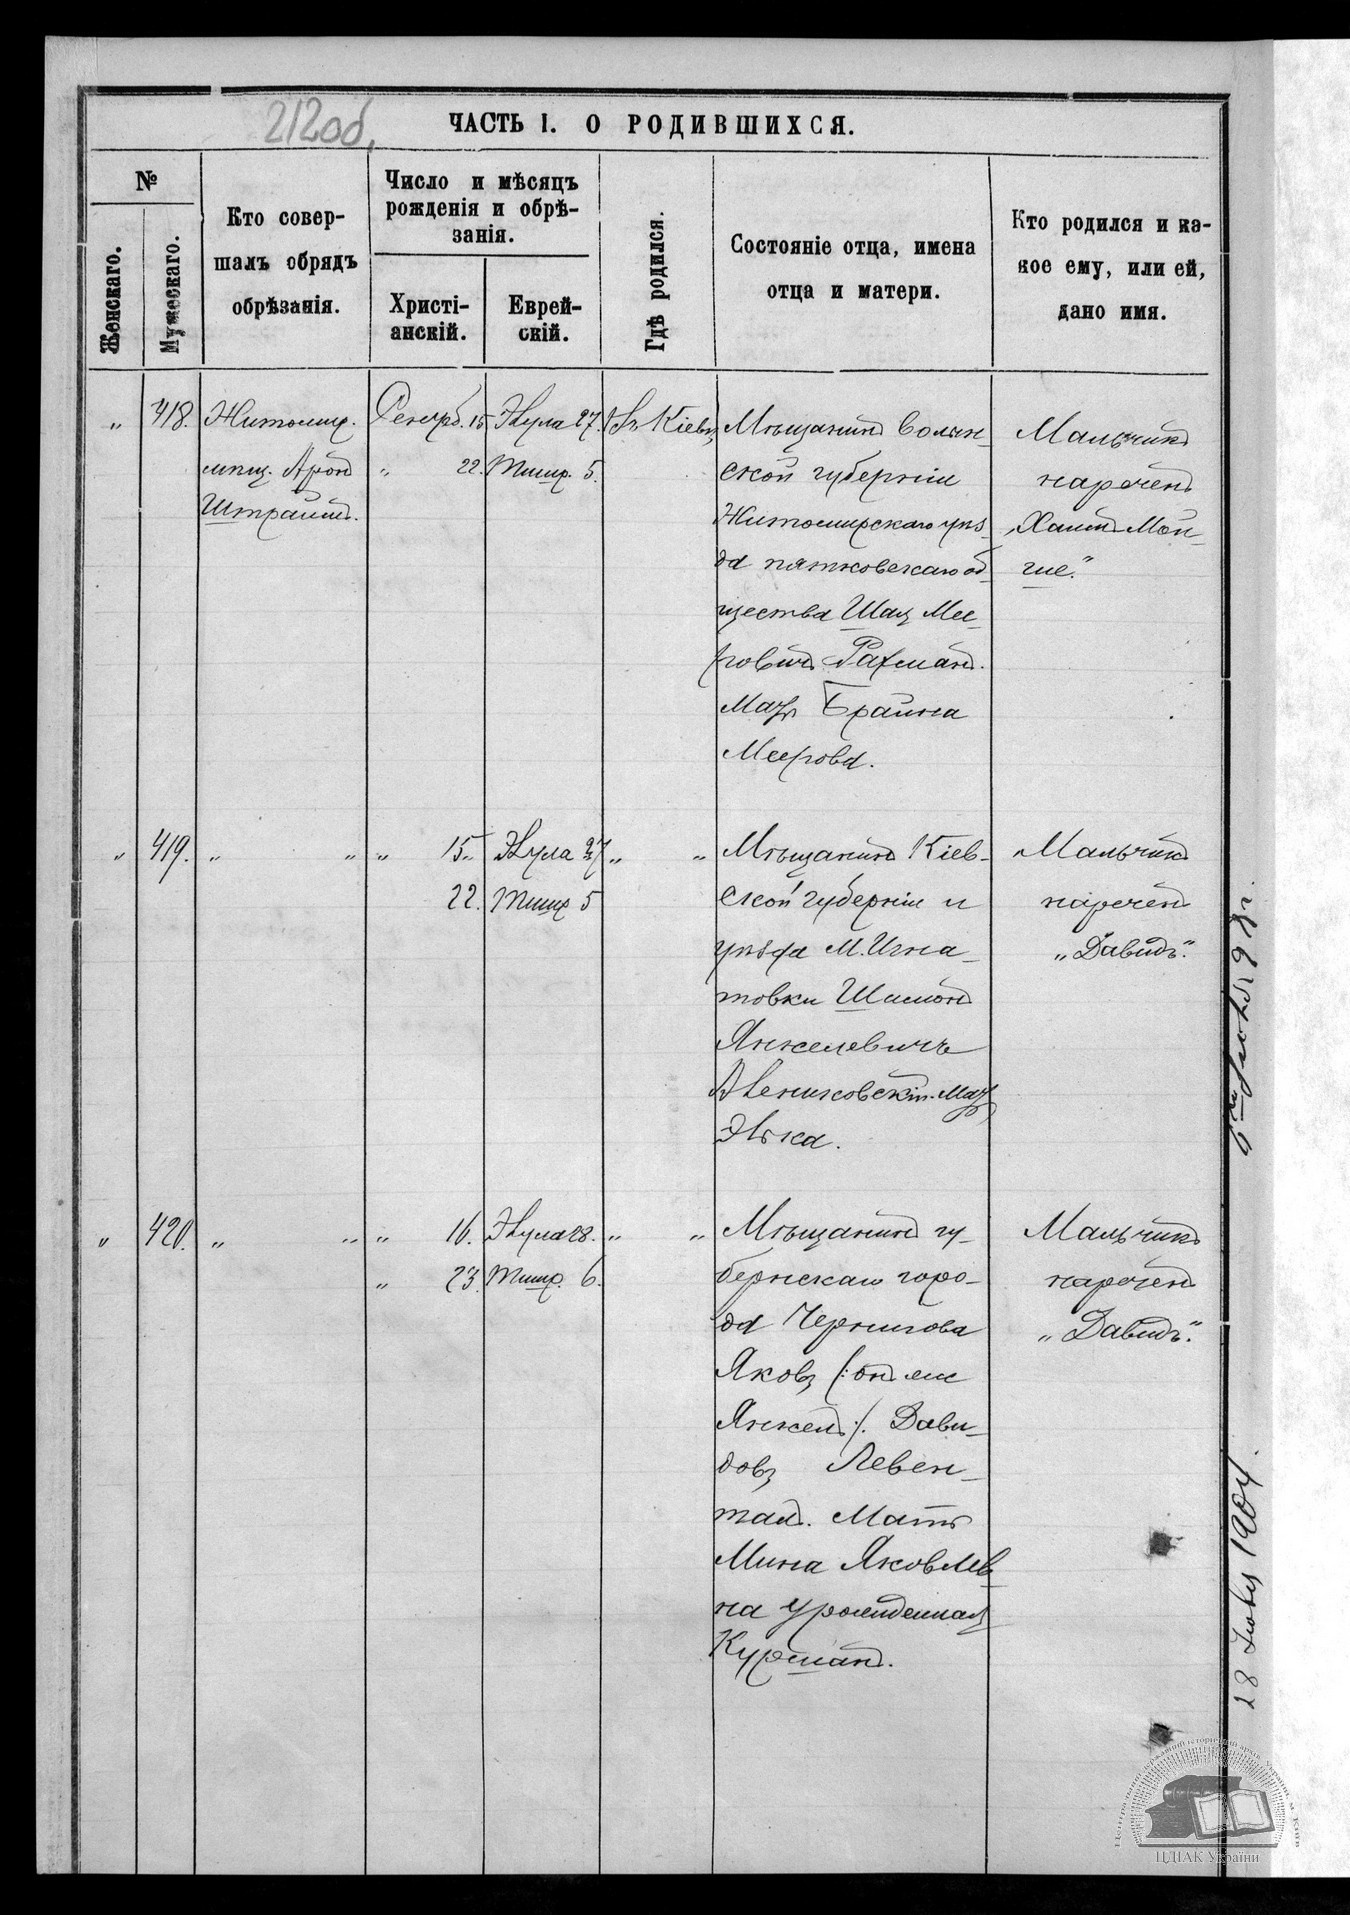 212об,
ЧАСТЬ I. О РОДИВШИХСЯ.
№
Женскаго.
Мужескаго.
Кто совер-
шалъ обрядъ
обрѣзанія.
Число и мѣсяцъ
рожденія и обрѣ-
занія.
Христі-
анскій.
Еврей-
скій.
Гдѣ родился.
Состояніе отца, имена
отца и матери.
Кто родился и ка-
кое ему, или ей,
дано имя.
„ 418. Житомир.
мѣщ. Арон
Сентяб. 15
„ 22.
Элула 27.
Тишр. 5.
Въ Кіевѣ
Мѣщанинъ Волын-
ской губерніи
Житомирскаго уѣз-
да пятковскаго об-
щества Шая Мее-
ровичъ Рахманъ.
Мать Брайна
Меерова.
Мальчикъ
нареченъ
„Хаимъ-Мой-
ше."
„ 419. „ „
„ 15.
22.
Элула 27
Тишр 5
„ „
Мѣщанинъ Кіев-
ской губерніи и
уѣзда М. Игна-
товки Шимонъ
Янкелевичъ
Мать
Элька.
Мальчикъ
нареченъ
„Давидъ."
„ 420. „ „
„ 16.
„ 23.
Элула 28.
Тишр. 6.
„ „
Мѣщанинъ гу-
бернскаго горо-
да Чернигова
Яковъ (: онъ же
Янкель :). Дави-
довъ Левен-
таль. Мать
Мина Яковлев-
на урожденная
Курманъ.
Мальчикъ
нареченъ
„Давидъ."
28 1904.
ЦДІАК України